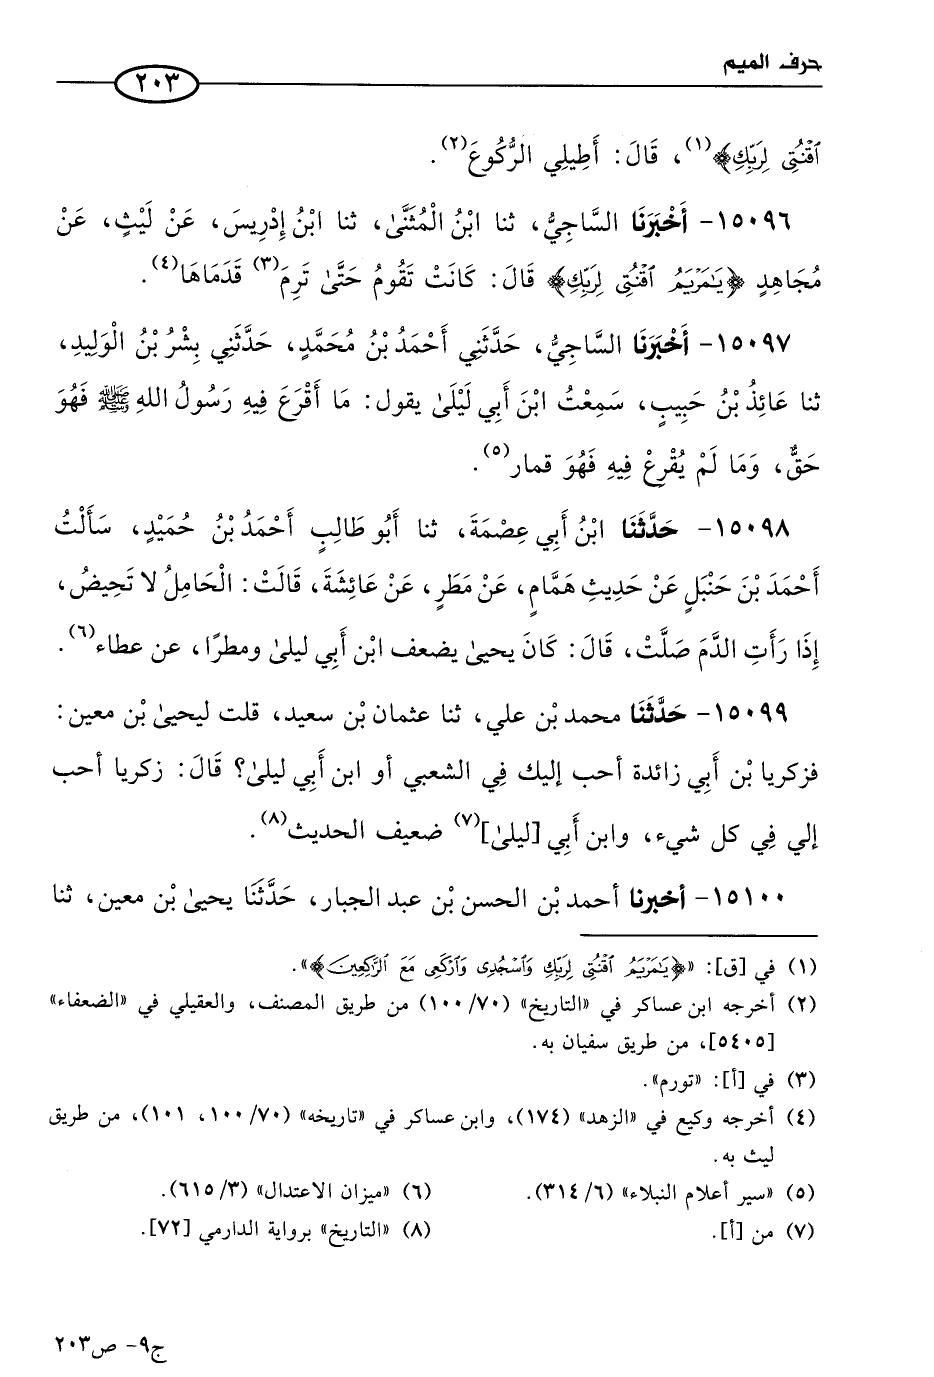 حرف الميم
٢٠٣
ٱقْنُتِى لِرَبِّكِ﴾(١)، قَالَ: أَطِيلِي الرُّكُوعَ(٢).
١٥٠٩٦- أَخْبَرَنَا السَّاجِيُّ، ثنا ابْنُ الْمُثَنَّىٰ، ثنا ابْنُ إِدْرِيسَ، عَنْ لَيْثٍ، عَنْ
مُجَاهِدٍ ﴿يَٰمَرْيَمُ ٱقْنُتِى لِرَبِّكِ﴾ قَالَ: كَانَتْ تَقُومُ حَتَّىٰ تَرِمَ(٣) قَدَمَاهَا(٤).
١٥٠٩٧- أَخْبَرَنَا السَّاجِيُّ، حَدَّثَنِي أَحْمَدُ بْنُ مُحَمَّدٍ، حَدَّثَنِي بِشْرُ بْنُ الْوَلِيدِ،
ثنا عَائِذُ بْنُ حَبِيبٍ، سَمِعْتُ ابْنَ أَبِي لَيْلَىٰ يقول: مَا أَقْرَعَ فِيهِ رَسُولُ اللهِ ﷺ فَهُوَ
حَقٌّ، وَمَا لَمْ يُقْرِعْ فِيهِ فَهُوَ قمار(٥).
١٥٠٩٨- حَدَّثَنَا ابْنُ أَبِي عِصْمَةَ، ثنا أَبُو طَالِبٍ أَحْمَدُ بْنُ حُمَيْدٍ، سَأَلْتُ
أَحْمَدَ بْنَ حَنْبَلٍ عَنْ حَدِيثِ هَمَّامٍ، عَنْ مَطَرٍ، عَنْ عَائِشَةَ، قَالَتْ: الْحَامِلُ لا تَحِيضُ،
إِذَا رَأَتِ الدَّمَ صَلَّتْ، قَالَ: كَانَ يحيىٰ يضعف ابْن أَبِي ليلىٰ ومطرًا، عن عطاء(٦).
١٥٠٩٩- حَدَّثَنَا محمد بْن علي، ثنا عثمان بْن سعيد، قلت ليحيىٰ بْن معين:
فزكريا بْن أَبِي زائدة أحب إليك فِي الشعبي أو ابن أَبِي ليلىٰ؟ قَالَ: زكريا أحب
إلي فِي كل شيء، وابن أَبِي [ليلىٰ](٧) ضعيف الحديث(٨).
١٥١٠٠- أخبرنا أحمد بْن الحسن بْن عبد الجبار، حَدَّثَنَا يحيىٰ بْن معين، ثنا
(١) في [ق]: «﴿يَٰمَرْيَمُ ٱقْنُتِى لِرَبِّكِ وَٱسْجُدِى وَٱرْكَعِى مَعَ ٱلرَّٰكِعِينَ﴾».
(٢) أخرجه ابن عساكر في «التاريخ» (٧٠/ ١٠٠) من طريق المصنف، والعقيلي في «الضعفاء»
[٥٤٠٥]، من طريق سفيان به.
(٣) في [أ]: «تورم».
(٤) أخرجه وكيع في «الزهد» (١٧٤)، وابن عساكر في «تاريخه» (٧٠/ ١٠٠، ١٠١)، من طريق
ليث به.
(٥) «سير أعلام النبلاء» (٦/ ٣١٤). (٦) «ميزان الاعتدال» (٣/ ٦١٥).
(٧) من [أ]. (٨) «التاريخ» برواية الدارمي [٧٢].
ج٩- ص٢٠٣